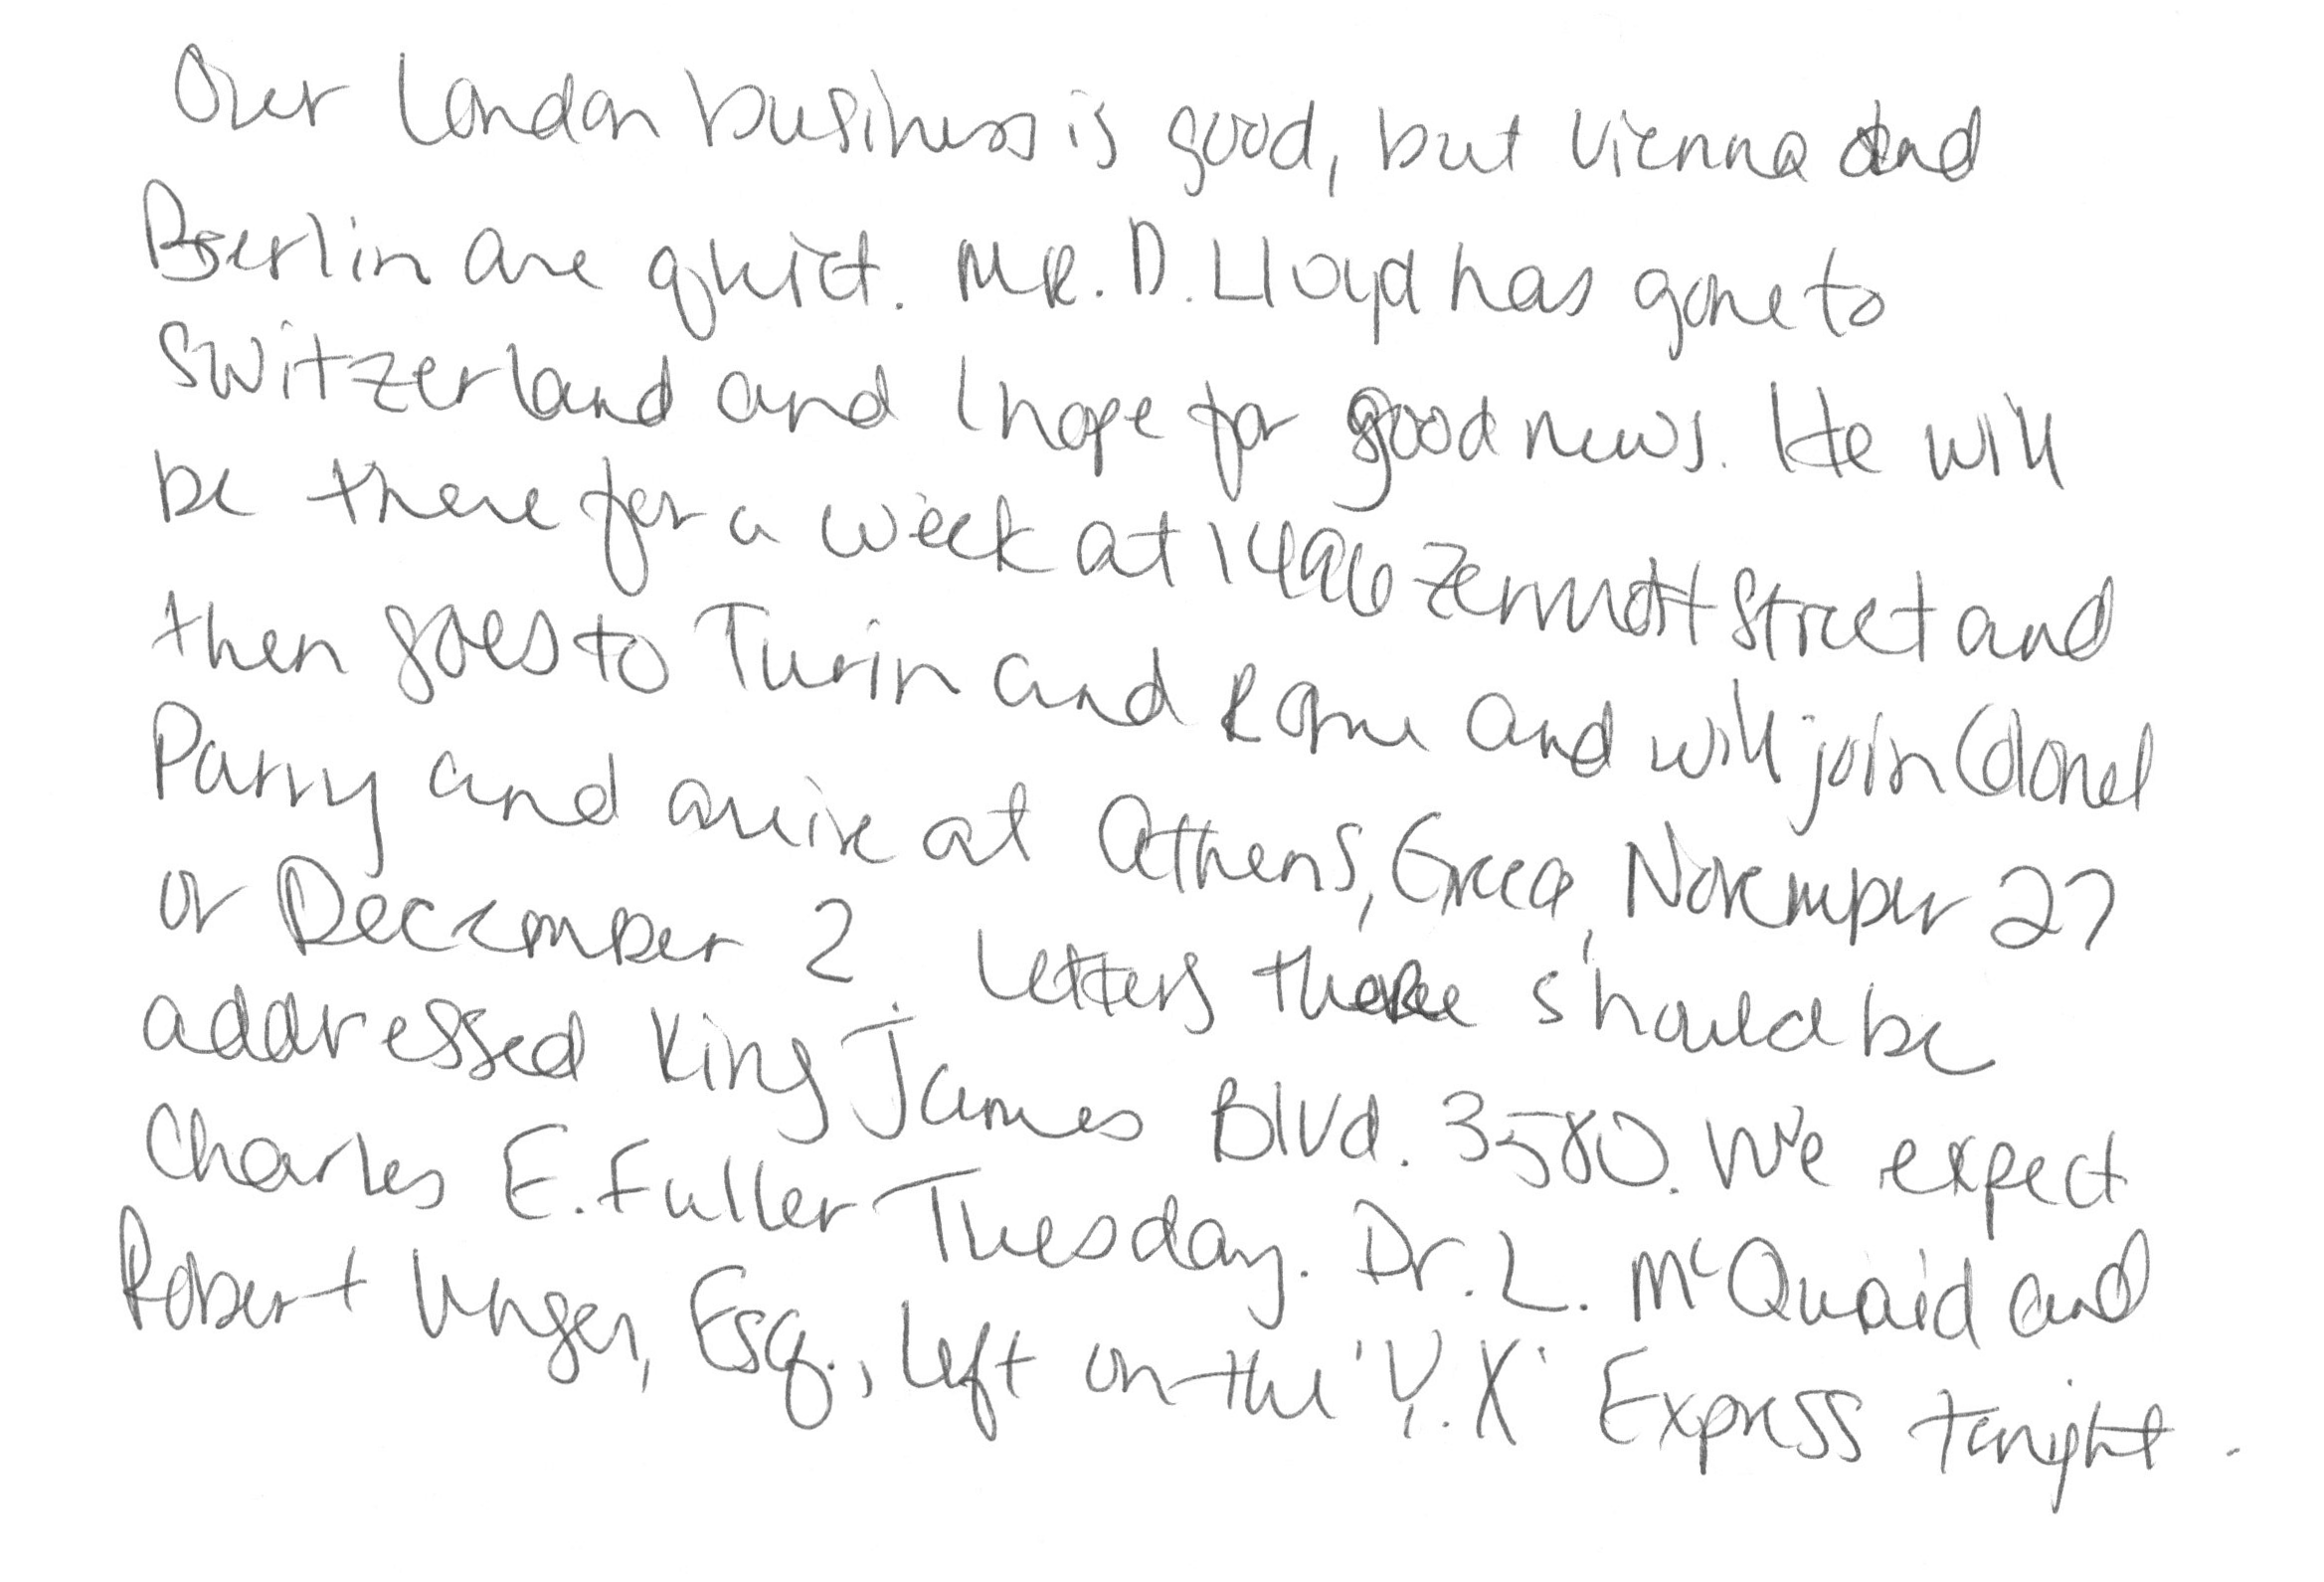 Our London business is good, but Vienna and
Berlin are quiet. MR. D. Lloyd has gone to
Switzerland and I hope for good news. He will
be there for a week at 1496 Zermott Street and
then goes to Turin and Rome and will join Colonel
Parry and arrive at Athens, Greece, November 27
or December 2. Letters there should be
addressed King James Blvd. 3580. We expect
Charles E. Fuller Tuesday. Dr. L. McQuaid and
Robert Unger, Esq., left on the 'Y. X' Express tonight.